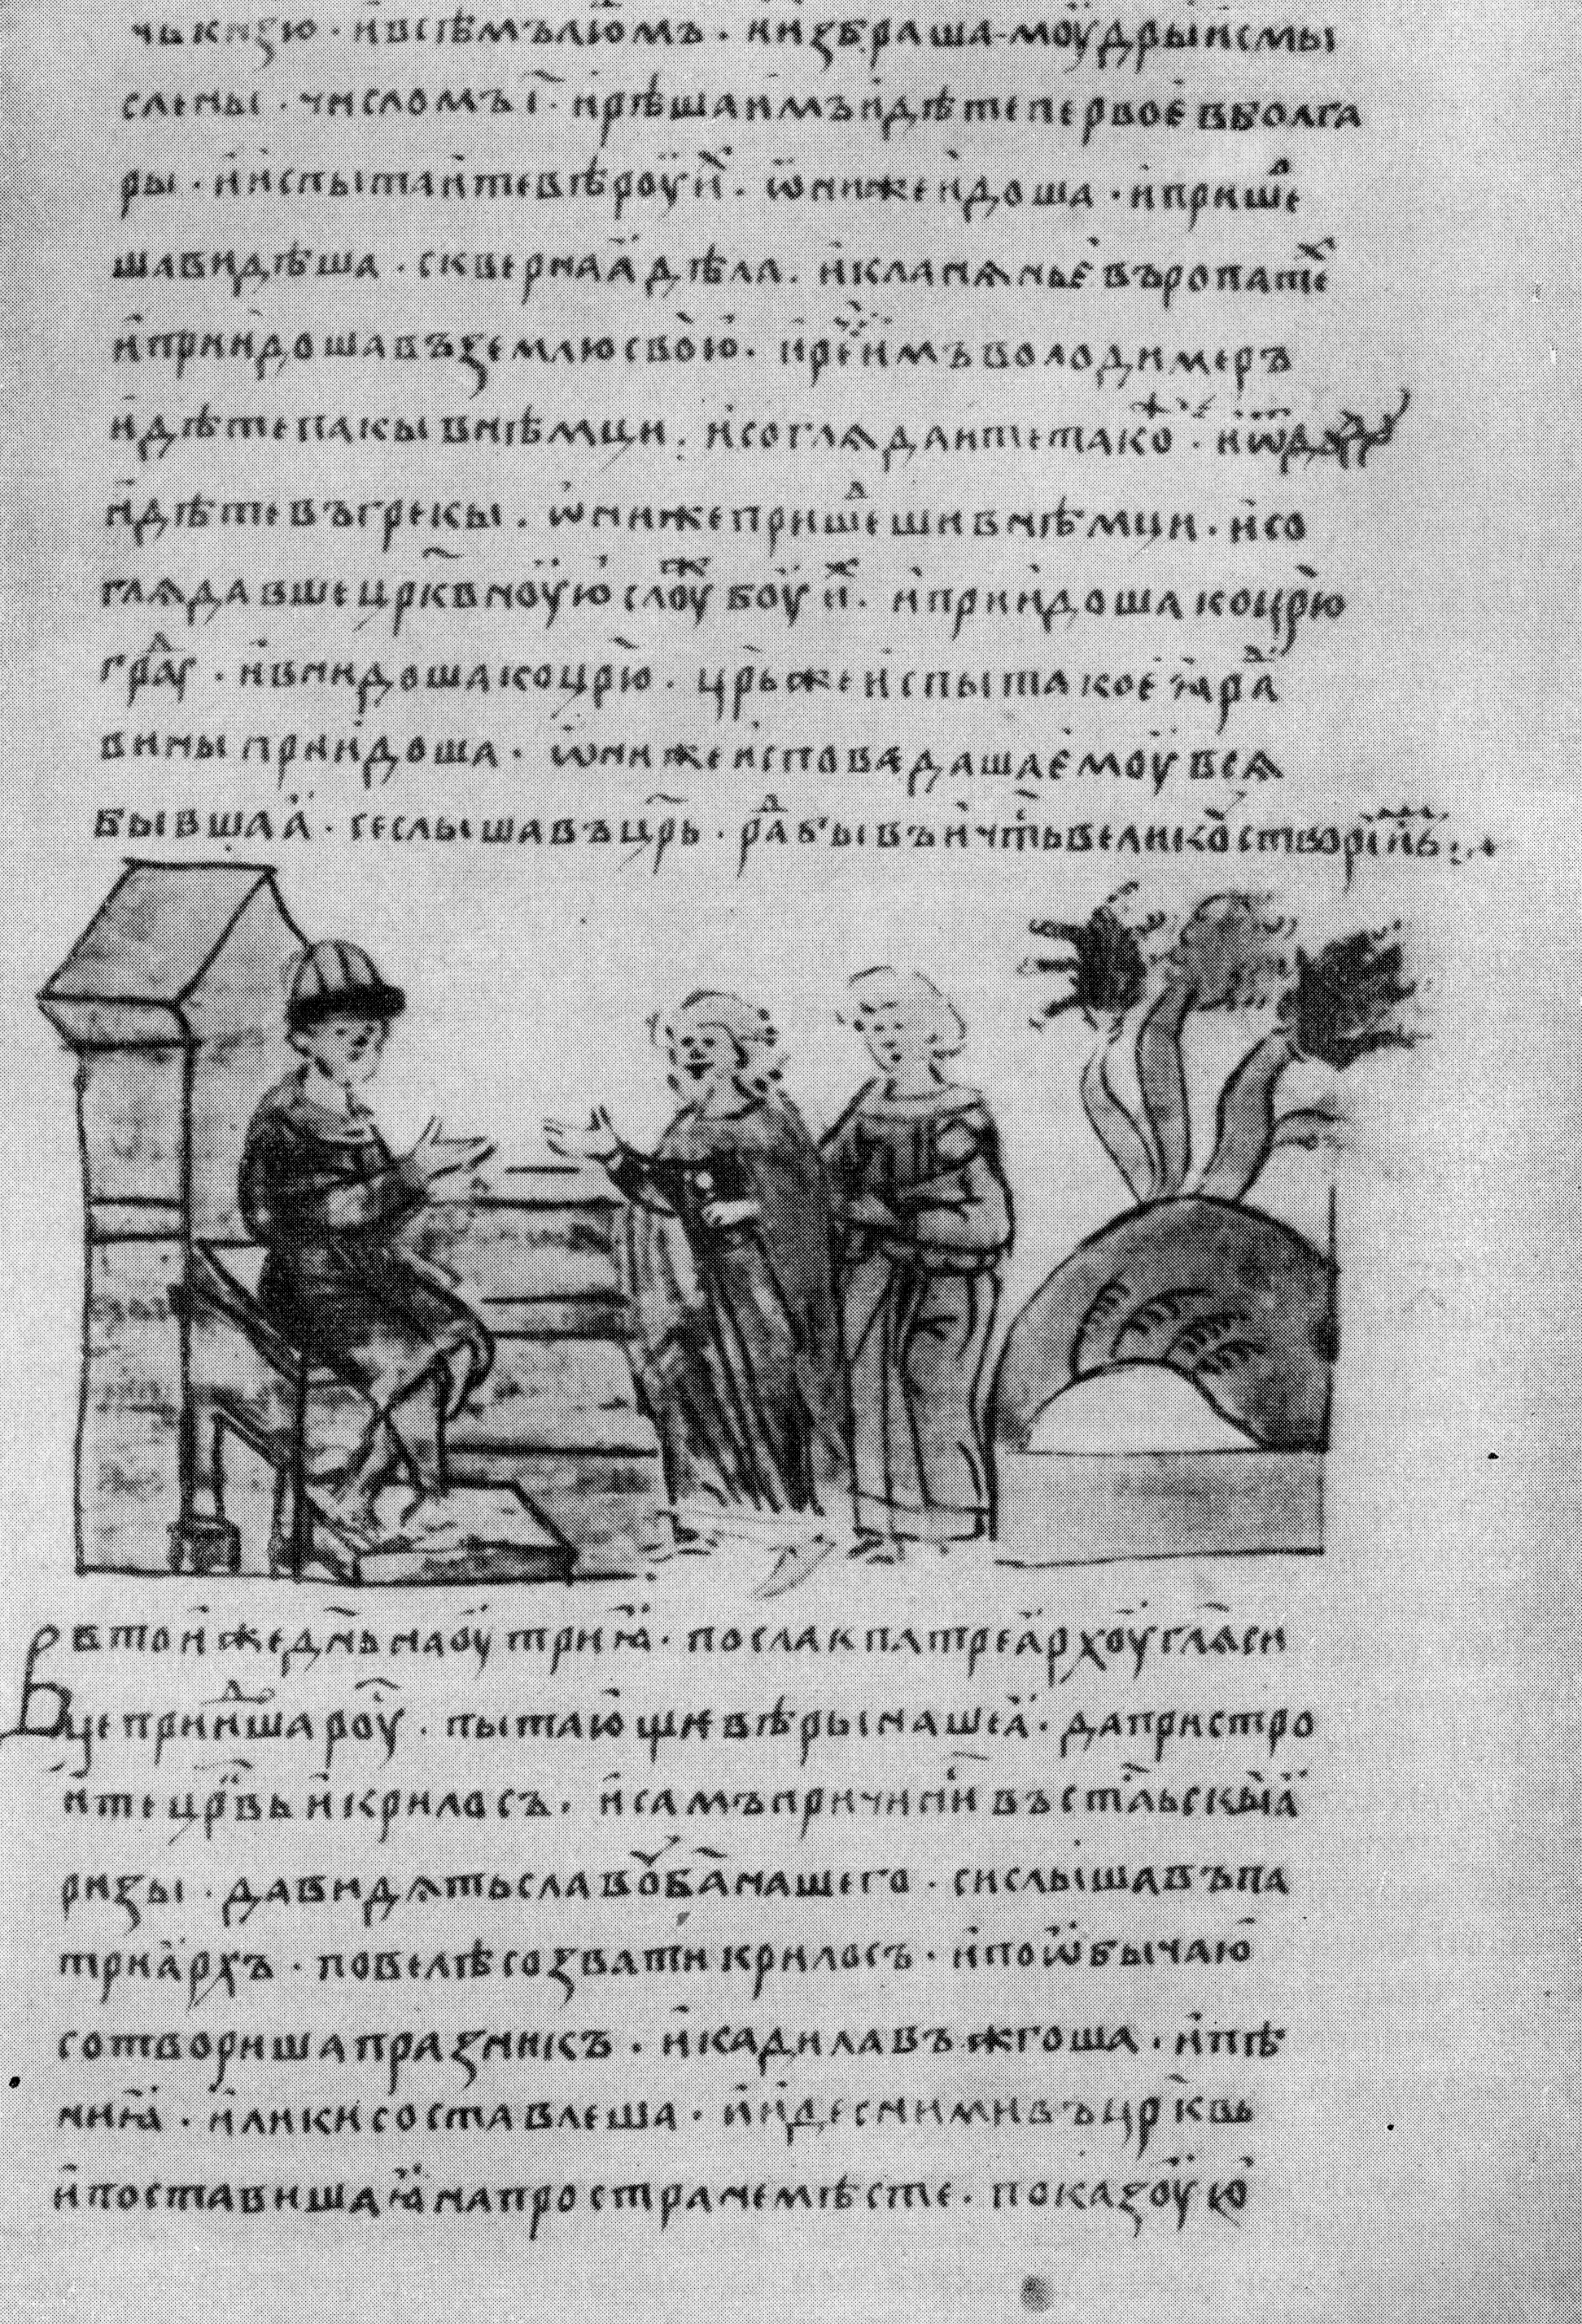 чь кнѧзю · и всѣмъ люмъ · и избраша моужи дры и смы
слены · числомъ і҃ · и рѣша имъ идѣте первоѥ в болга
ры · и испытаите вѣроу и҃ · ѡни же идоша · и прише
ша видѣша · сквернаꙗ дѣла · и кланѧньє въ ропатѣ
и приидоша въ землю свою · и рє҃ имъ володимеръ
идѣте пакы в нѣмци · и соглѧдаите тако · и ѿ
идѣте въ грекы · ѡни же пришешив нѣмци · и со
глѧдавше црк҃вноую слоу боу и · и приидоша ко црю҃
гра · и внидоша ко црю҃ · црь҃ же испыта коеꙗ ра
вины приидоша · ѡни же исповѣдаша ємоу всѧ
бывшаꙗ · се слышавъ црь҃ · ра бывъ и чть҃ велико створи имъ
В тои же дн҃ь наоутриꙗ · посла к патреарху гл҃ѧ си
це прииша роу · пытающиѥ вѣры нашеꙗ · да пристро
ите црк҃вь и крилосъ · и самъ причини въ ст҃льскыꙗ
ризы · да видѧть славоу ба҃ нашего · си слышавъ па
триархъ · повелѣ созвати крилосъ · и по ѡбычаю
сотвориша празникъ · и кадила въжгоша · и пѣ
ниꙗ · и лики составлеша · и иде с ними въ црк҃вь
и поставиша ꙗ на пространемѣсте · показоую